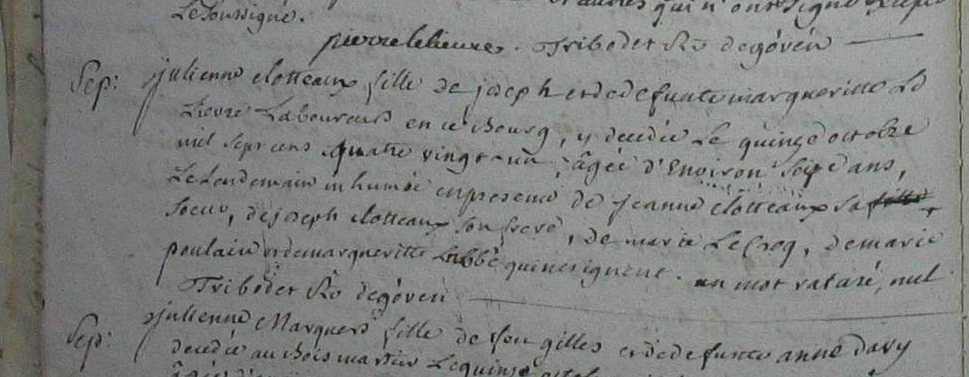 et autres qui n'ont signé excepté
Le Soussigné.
pierre lelieure. Tribodet Rr de góven
Sep: julienne clotteaux fille de joseph et de defunte margueritte Le
Lievre Laboureurs en ce Bourg, y decedée Le quinze octobre
mil sept cens quatre vingt-un, âgée d'Environ seize ans,
Le Lendemain inhumée en presence de jeanne clotteaux sa fille
soeur, de joseph clotteaux son frere, de marie Le Croq, de marie
poulain et de margueritte Labbé qui ne signent. un mot raturé, nul
Tribodet Rr de góven
Sep: julienne Marquers fille de feu gilles et de defunte anne davy
decedée au Bois martin Le quinze